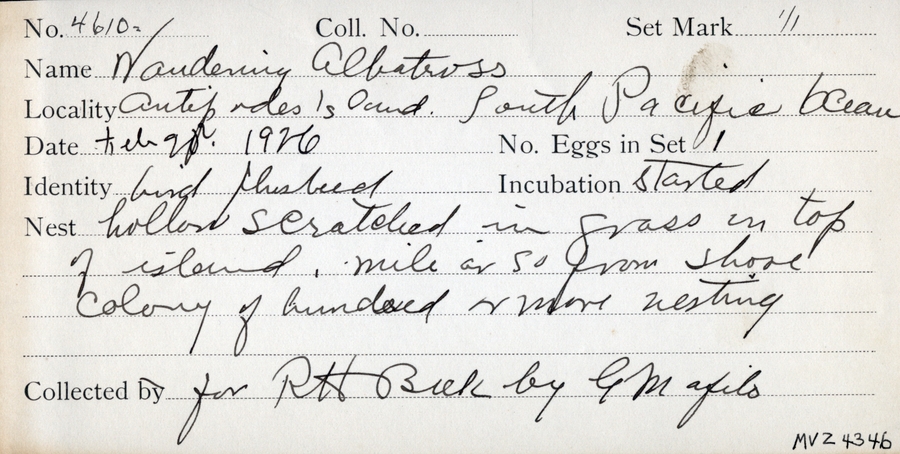 No. 4610= Coll. No. Set Mark 1/1
Name Wandering Albatross
Locality Antipodes Island. South Pacific Ocean
Date Feb 1926 No. Eggs in Set 1
Identity bird flushed Incubation Started
Nest hollow scratched in grass on top
of island, mile or so from shore
Colony of hundred or more nesting
Collected by for RH Beck by G M
MVZ 4346